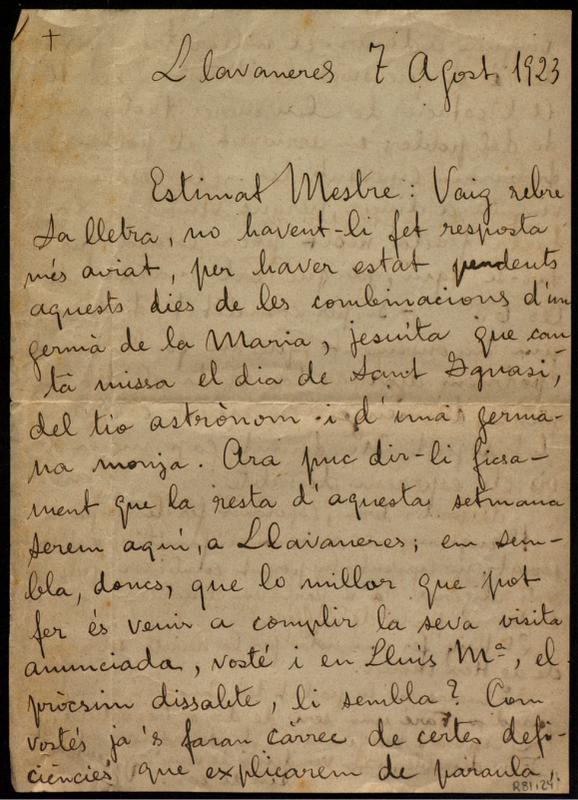 +
Llavaneres 7 Agost 1923
Estimat Mestre: Vaig rebre
sa lletra, no havent-li fet resposta
més aviat, per haver estat pendents
aquests dies de les combinacions d'un
germà de la Maria, jesuita que can
tà missa el dia de Sant Ignasi,
del tio astrònom i d'una germa-
na monja. Ara puc dir-li ficsa-
ment que la resta d'aquesta setmana
serem aquí, a Llavaneres; em sem-
bla, doncs, que lo millor que pot
fer és venir a complir la seva visita
anunciada, vosté i en Lluis Mª, el
pròcsim dissabte, li sembla? Com
vostés ja 's faran càrrec de certes defi-
ciències que explicarem de paraula,